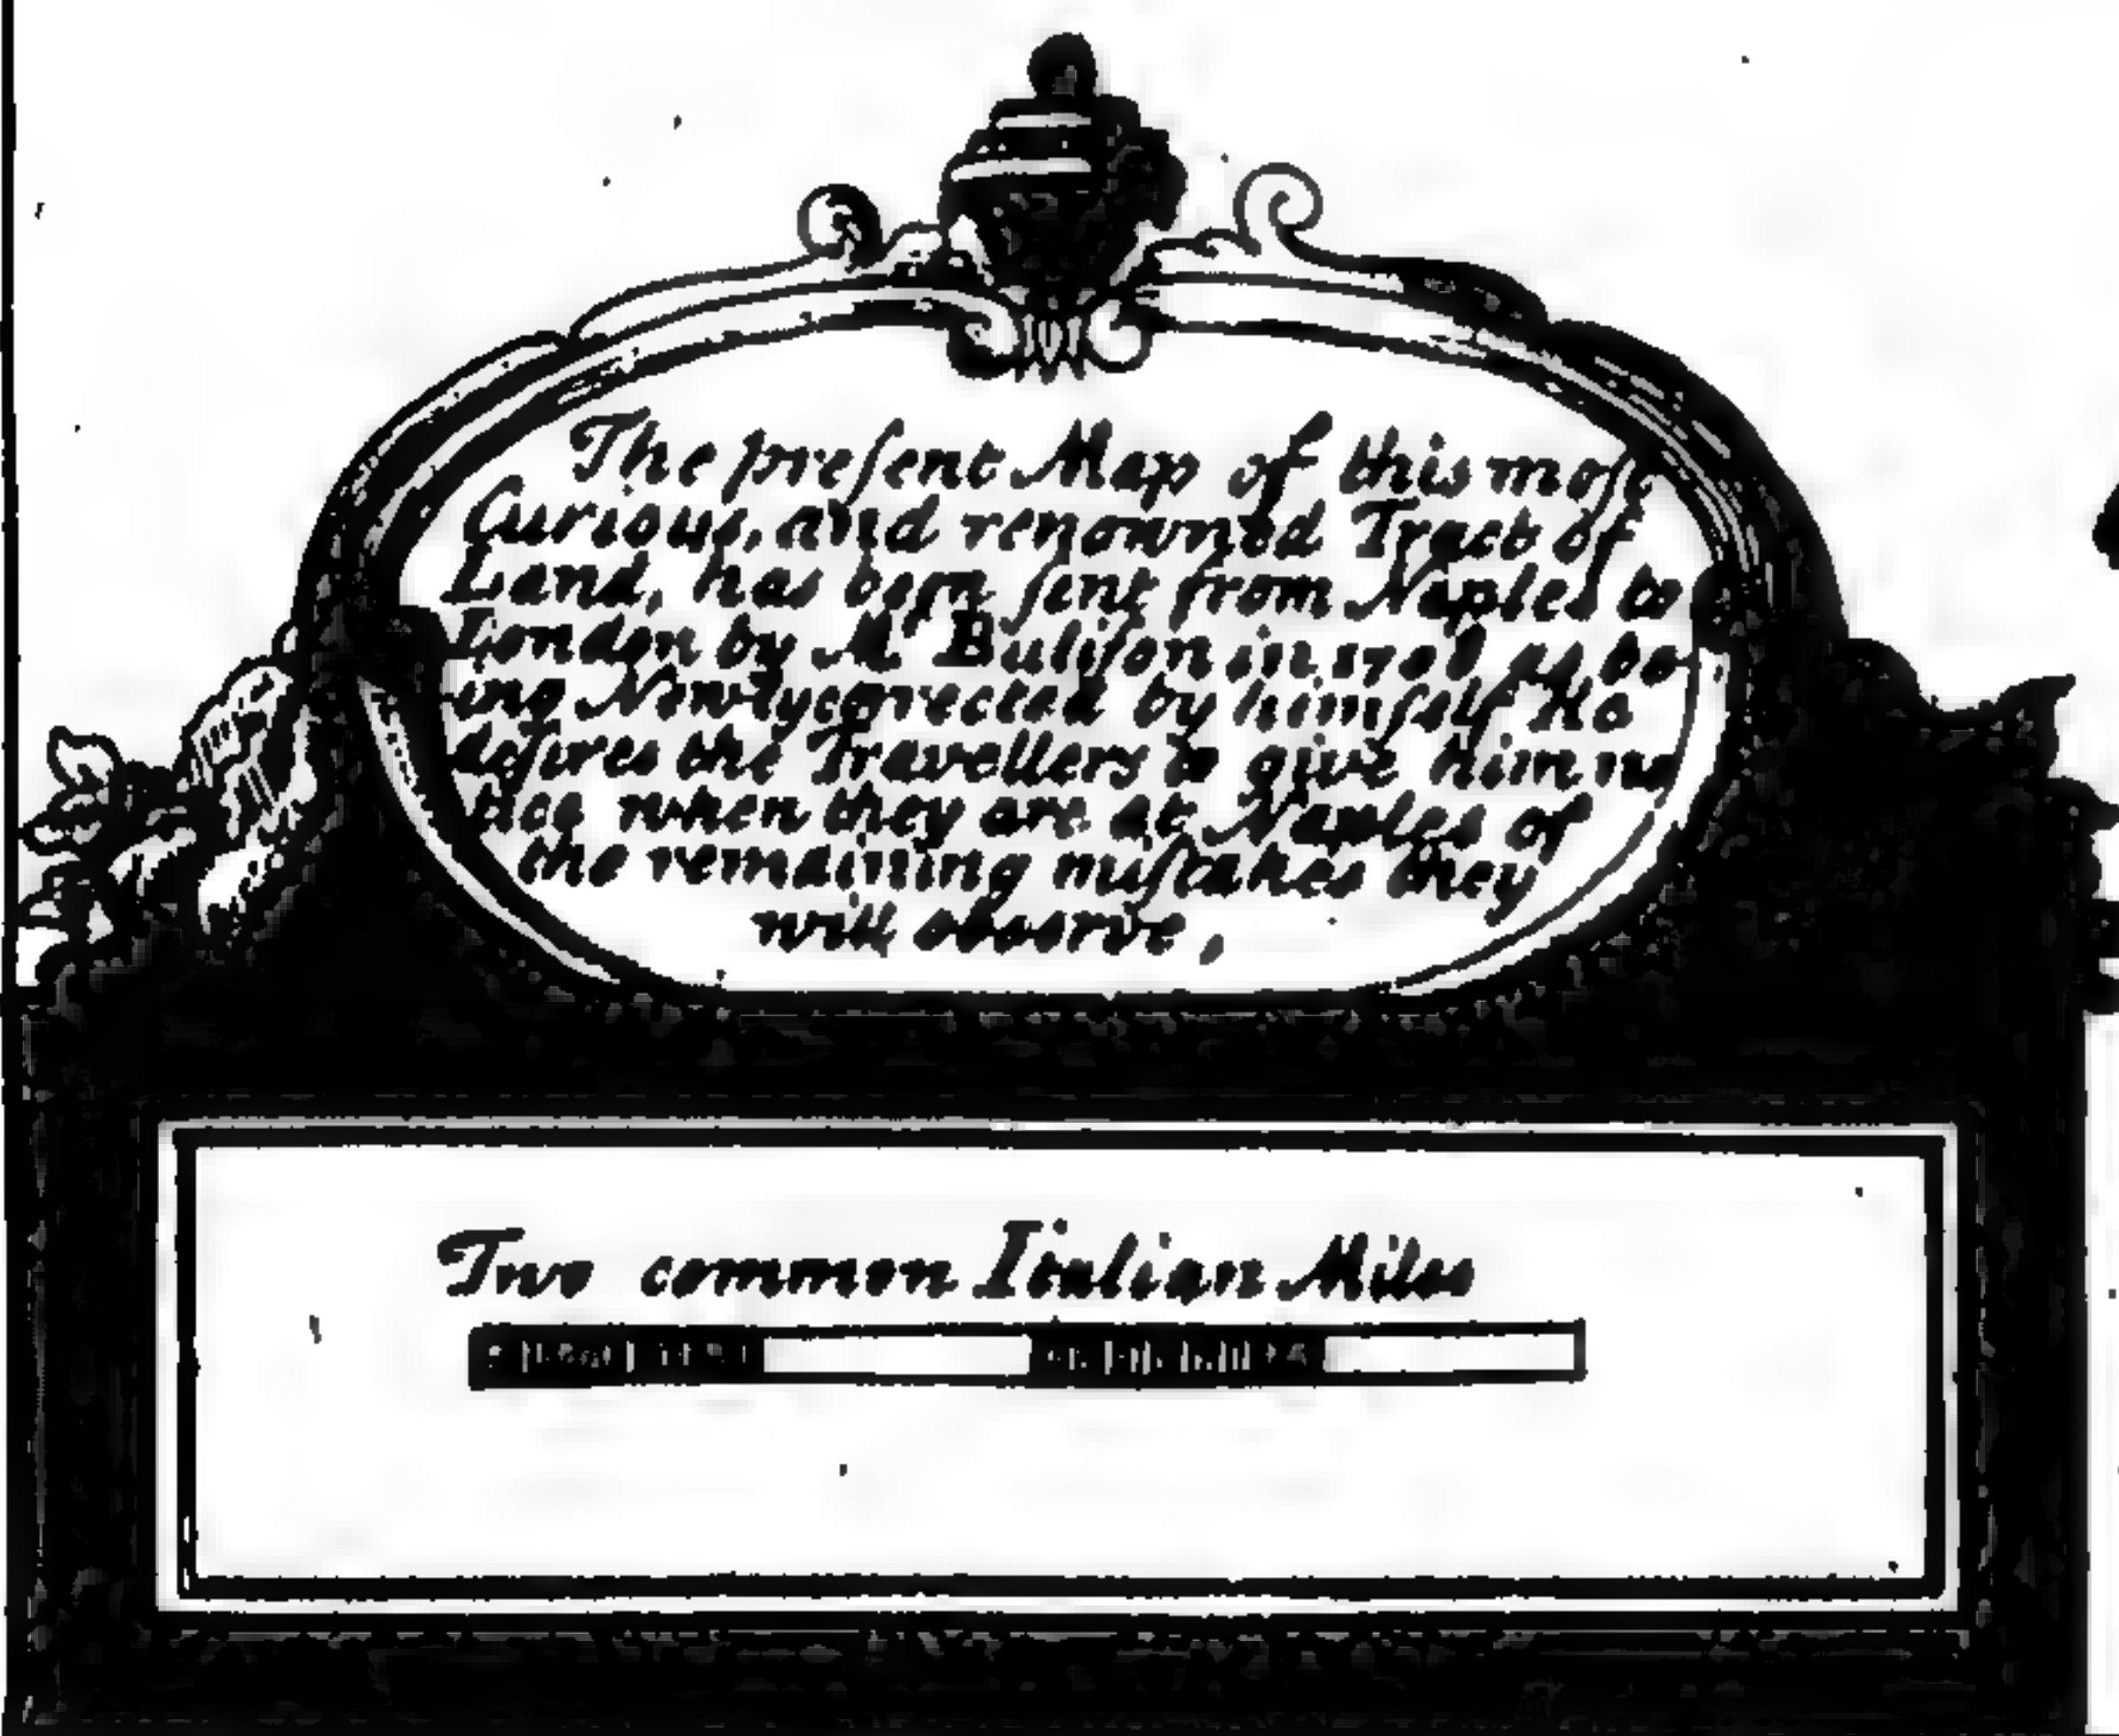 The preſent Map of this moſt
Curious, and renowned Tract of
Land, has been ſent from Naples to
London by Mr Buliſon in as be-
ing Newly corrected by himſelf He
deſires the Travellers to give him no
tice when they are at Naples of
the remaining miſtakes they
will observe,
Two common Italian Miles